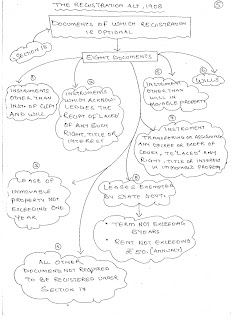 THE REGISTRATION ACT, 1908
DOCUMENTS OF WHICH REGISTRATION
IS OPTIONAL
SECTION 18
EIGHT DOCUMENTS
INSTRUMENTS
OTHER THAN
INST. OF GIFT
AND WILL
INSTRUMENTS
WHICH ACKNOW-
LEDGES THE
RECIPT OF "LACED"
OF ANY SUCH
RIGHT, TITLE OR
INTEREST
INSTRUMENTS
OTHER THAN
WILL IN
MOVABLE PROPERTY
WILLS
INSTRUMENT
TRANSFERING OR ASSIGNING
ANY DECREE OR ORDER OF
COURT, TO "LACED" ANY
RIGHT, TITLE OR INTEREST
IN IMMOVABLE PROPERTY
LEASE OF
IMMOVABLE
PROPERTY NOT
EXCEEDING ONE
YEAR
LEASES EXEMPTED
BY STATE GOVT.
• TERM NOT EXCEEDING
5 YEARS
• RENT NOT EXCEEDING
₹ 50. (ANNUALY)
ALL OTHER
DOCUMENT NOT REQUIRED
TO BE REGISTERED UNDER
SECTION 17